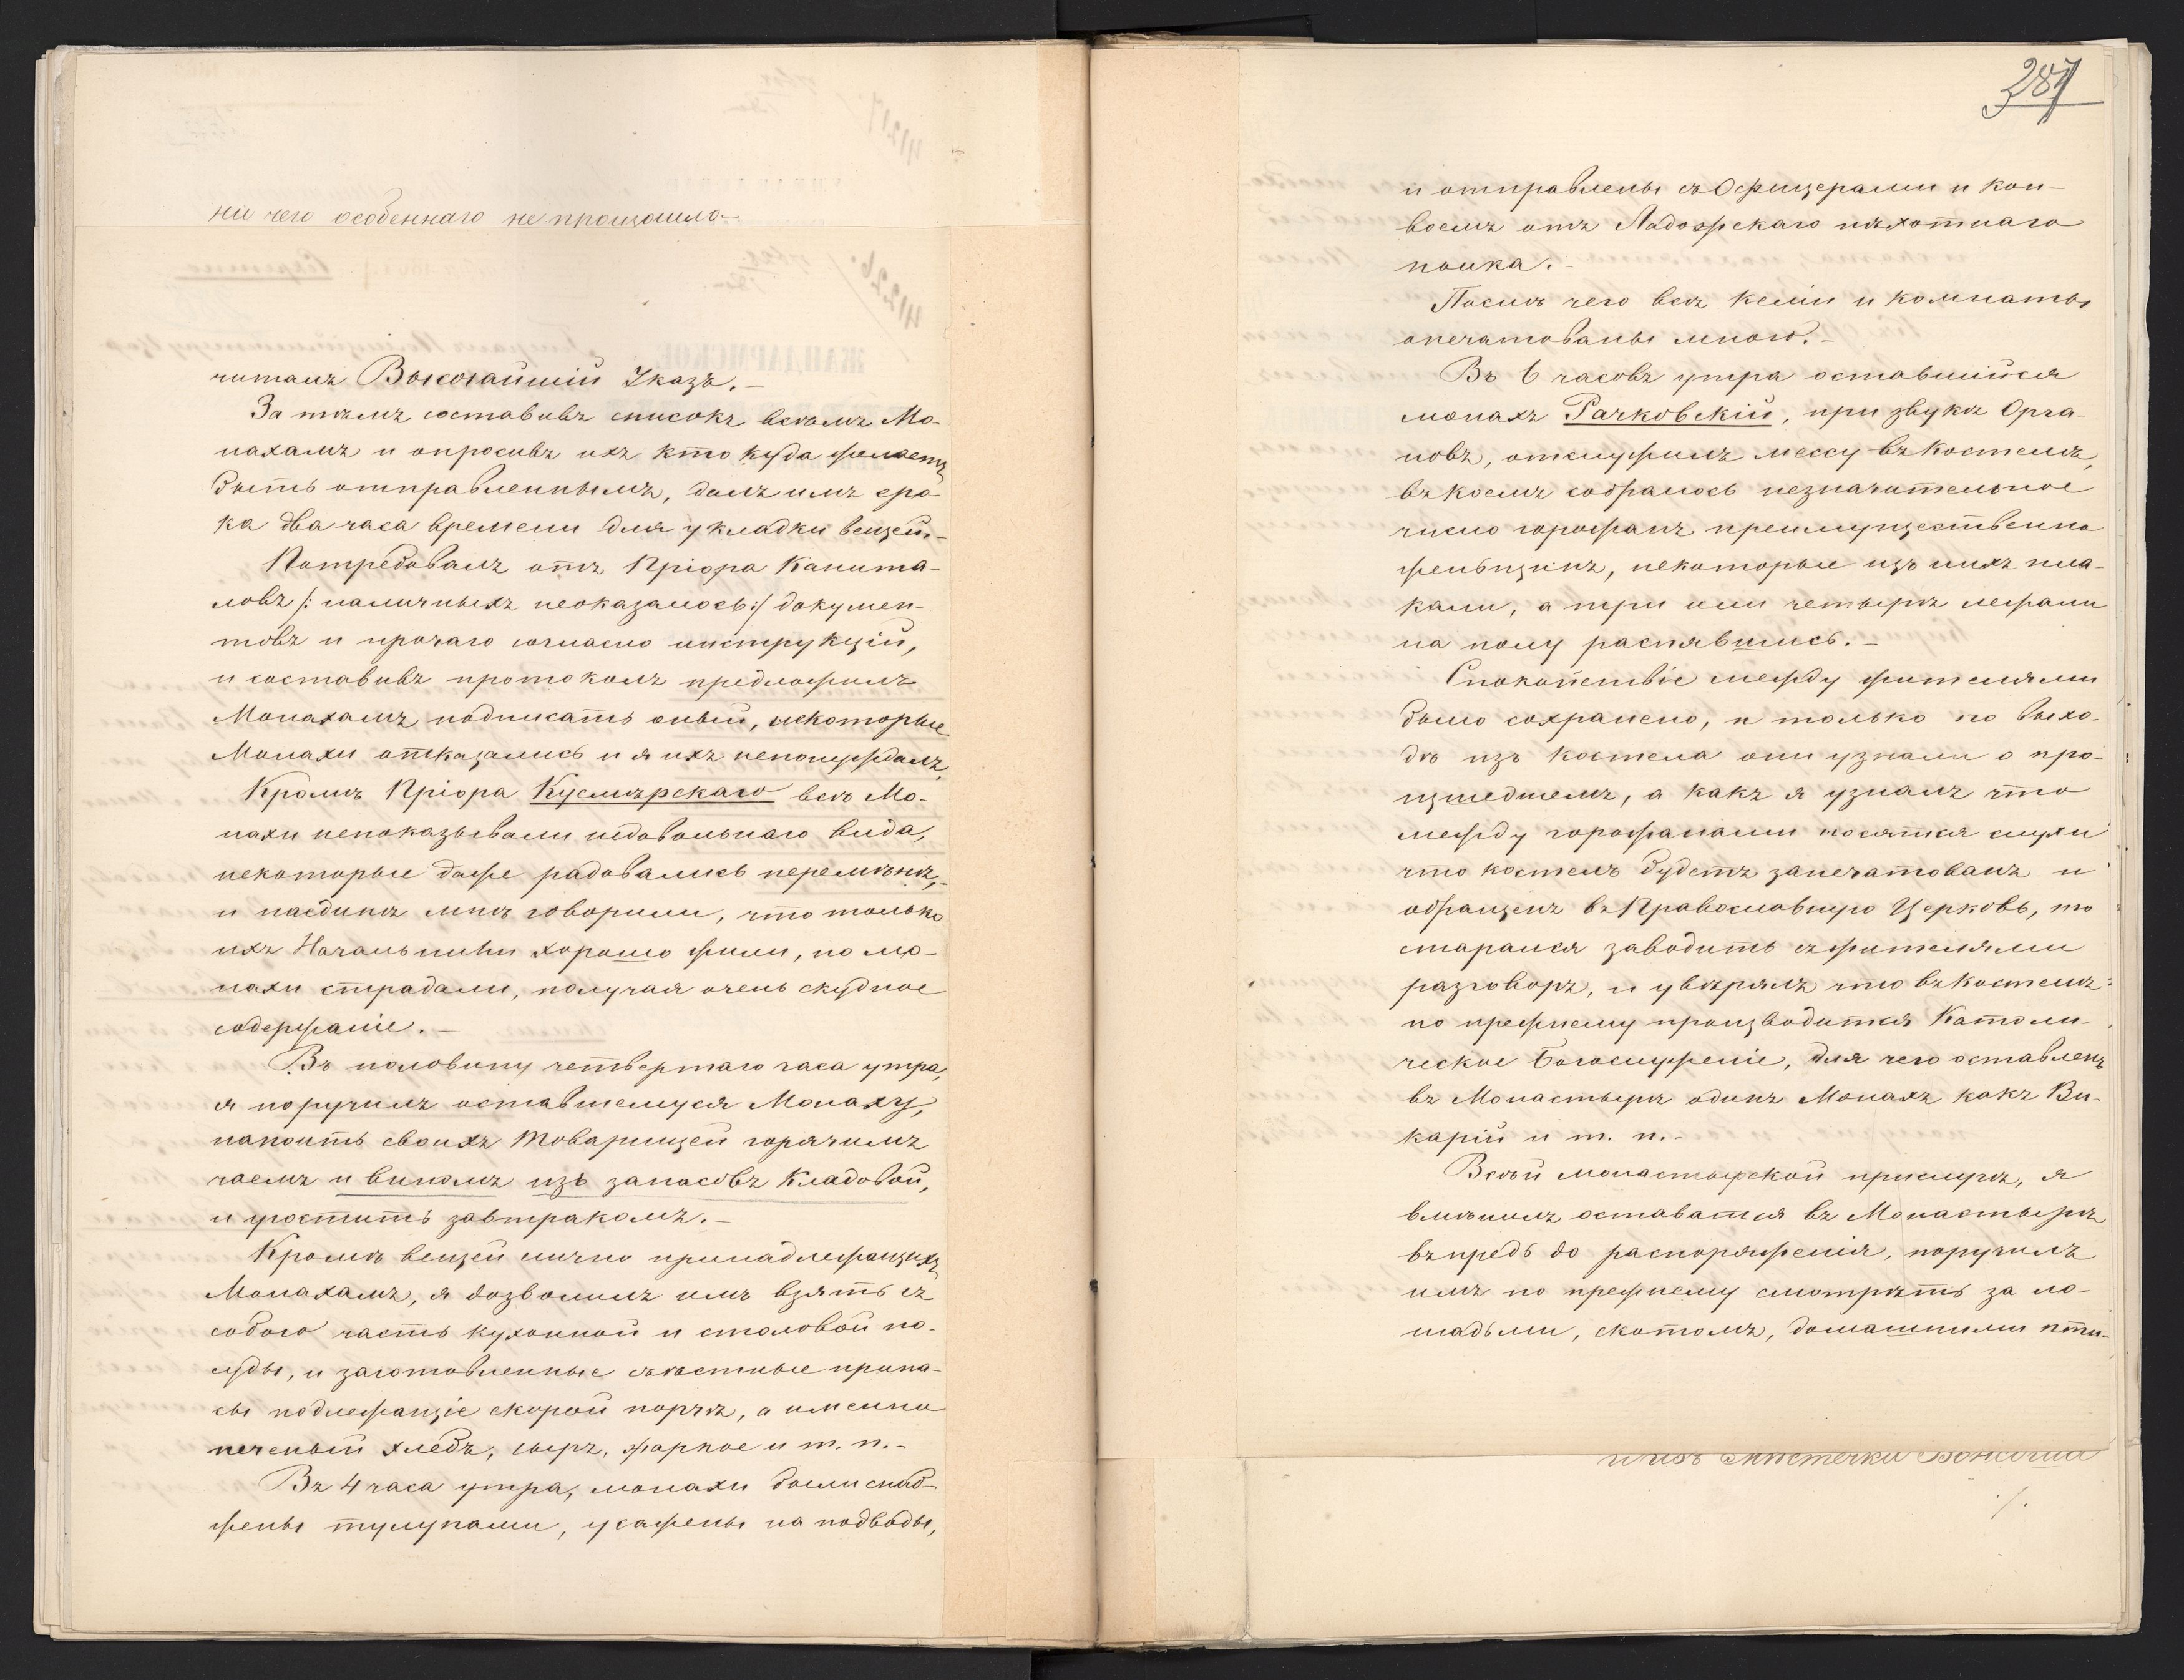 ни чего особеннаго не произошло.
читанъ Высочайшій Указъ.–
За тѣмъ составивъ списокъ всѣмъ Мо-
нахамъ и опросивъ ихъ кто куда желаетъ
быть отправленнымъ, далъ имъ сро-
ка два часа времени для укладки вещей.–
Потребовалъ отъ Пріора Капита-
ловъ /: наличныхъ неоказалось :/ докумен-
товъ и прочаго согласно инструкціи,
и составивъ протоколъ предложилъ
Монахамъ подписать оный, некоторые
Монахи отказались и я ихъ непонуждалъ,
Кромѣ Пріора Кусмѣрскаго всѣ Мо-
нахи непоказывали недовольнаго вида,
некоторые даже радовались перемѣнѣ,–
и наединѣ мнѣ говорили, что только
ихъ Начальники хорошо жили, но мо-
нахи страдали, получая очень скудное
содержаніе.–
Въ половину четвертаго часа утра,
я поручилъ оставшемуся Монаху,
напоить своихъ товарищей горячимъ
чаемъ и виномъ изъ запасовъ Кладовой,
и угостить завтракомъ.–
Кромѣ вещей лично принадлежащихъ
Монахамъ, я дозволилъ имъ взять съ
собою часть кухонной и столовой по-
суды, и заготовленные съѣстные припа-
сы подлежащіе скорой порчѣ, а именно
печеный хлебъ, сыръ, жаркое и т. п.–
Въ 4 часа утра, монахи были снаб-
жены тулупами, усажены на подводы,
287
и отправлены съ Офицерами и кон-
воемъ отъ Ладожскаго пѣхотнаго
полка.–
Послѣ чего всѣ келіи и комнаты
опечатованы мною.–
Въ 6 часовъ утра оставшійся
монахъ Рачковскій, при звукѣ Орга-
новъ, отслужилъ мессу въ Костелѣ,
въ коемъ собралось незначительное
число горожанъ преимущественно
женьщинъ, некоторые изъ нихъ пла-
кали, а три или четыре лежали
на полу распявшись.–
Спокойствіе между жителями
было сохранено, и только по выхо-
дѣ изъ костела они узнали о про-
изшедшемъ, а какъ я узналъ что
между горожанами носятся слухи
что костелъ будетъ запечатованъ и
обращенъ въ Православную Церковь, то
старался заводить съ жителями
разговоръ, и увѣрялъ что въ Костелѣ
по прежнему производится Католи-
ческое Богослуженіе, для чего оставленъ
въ Монастырѣ одинъ Монахъ какъ Ви-
карій и т. п.–
Всѣй монастырской прислугѣ, я
вмѣнилъ оставатся въ Монастырѣ
въпредь до распоряженія, поручилъ
имъ по прежнему смотрѣть за ло-
шадьми, скотомъ, домашними пти-
мѣстечка